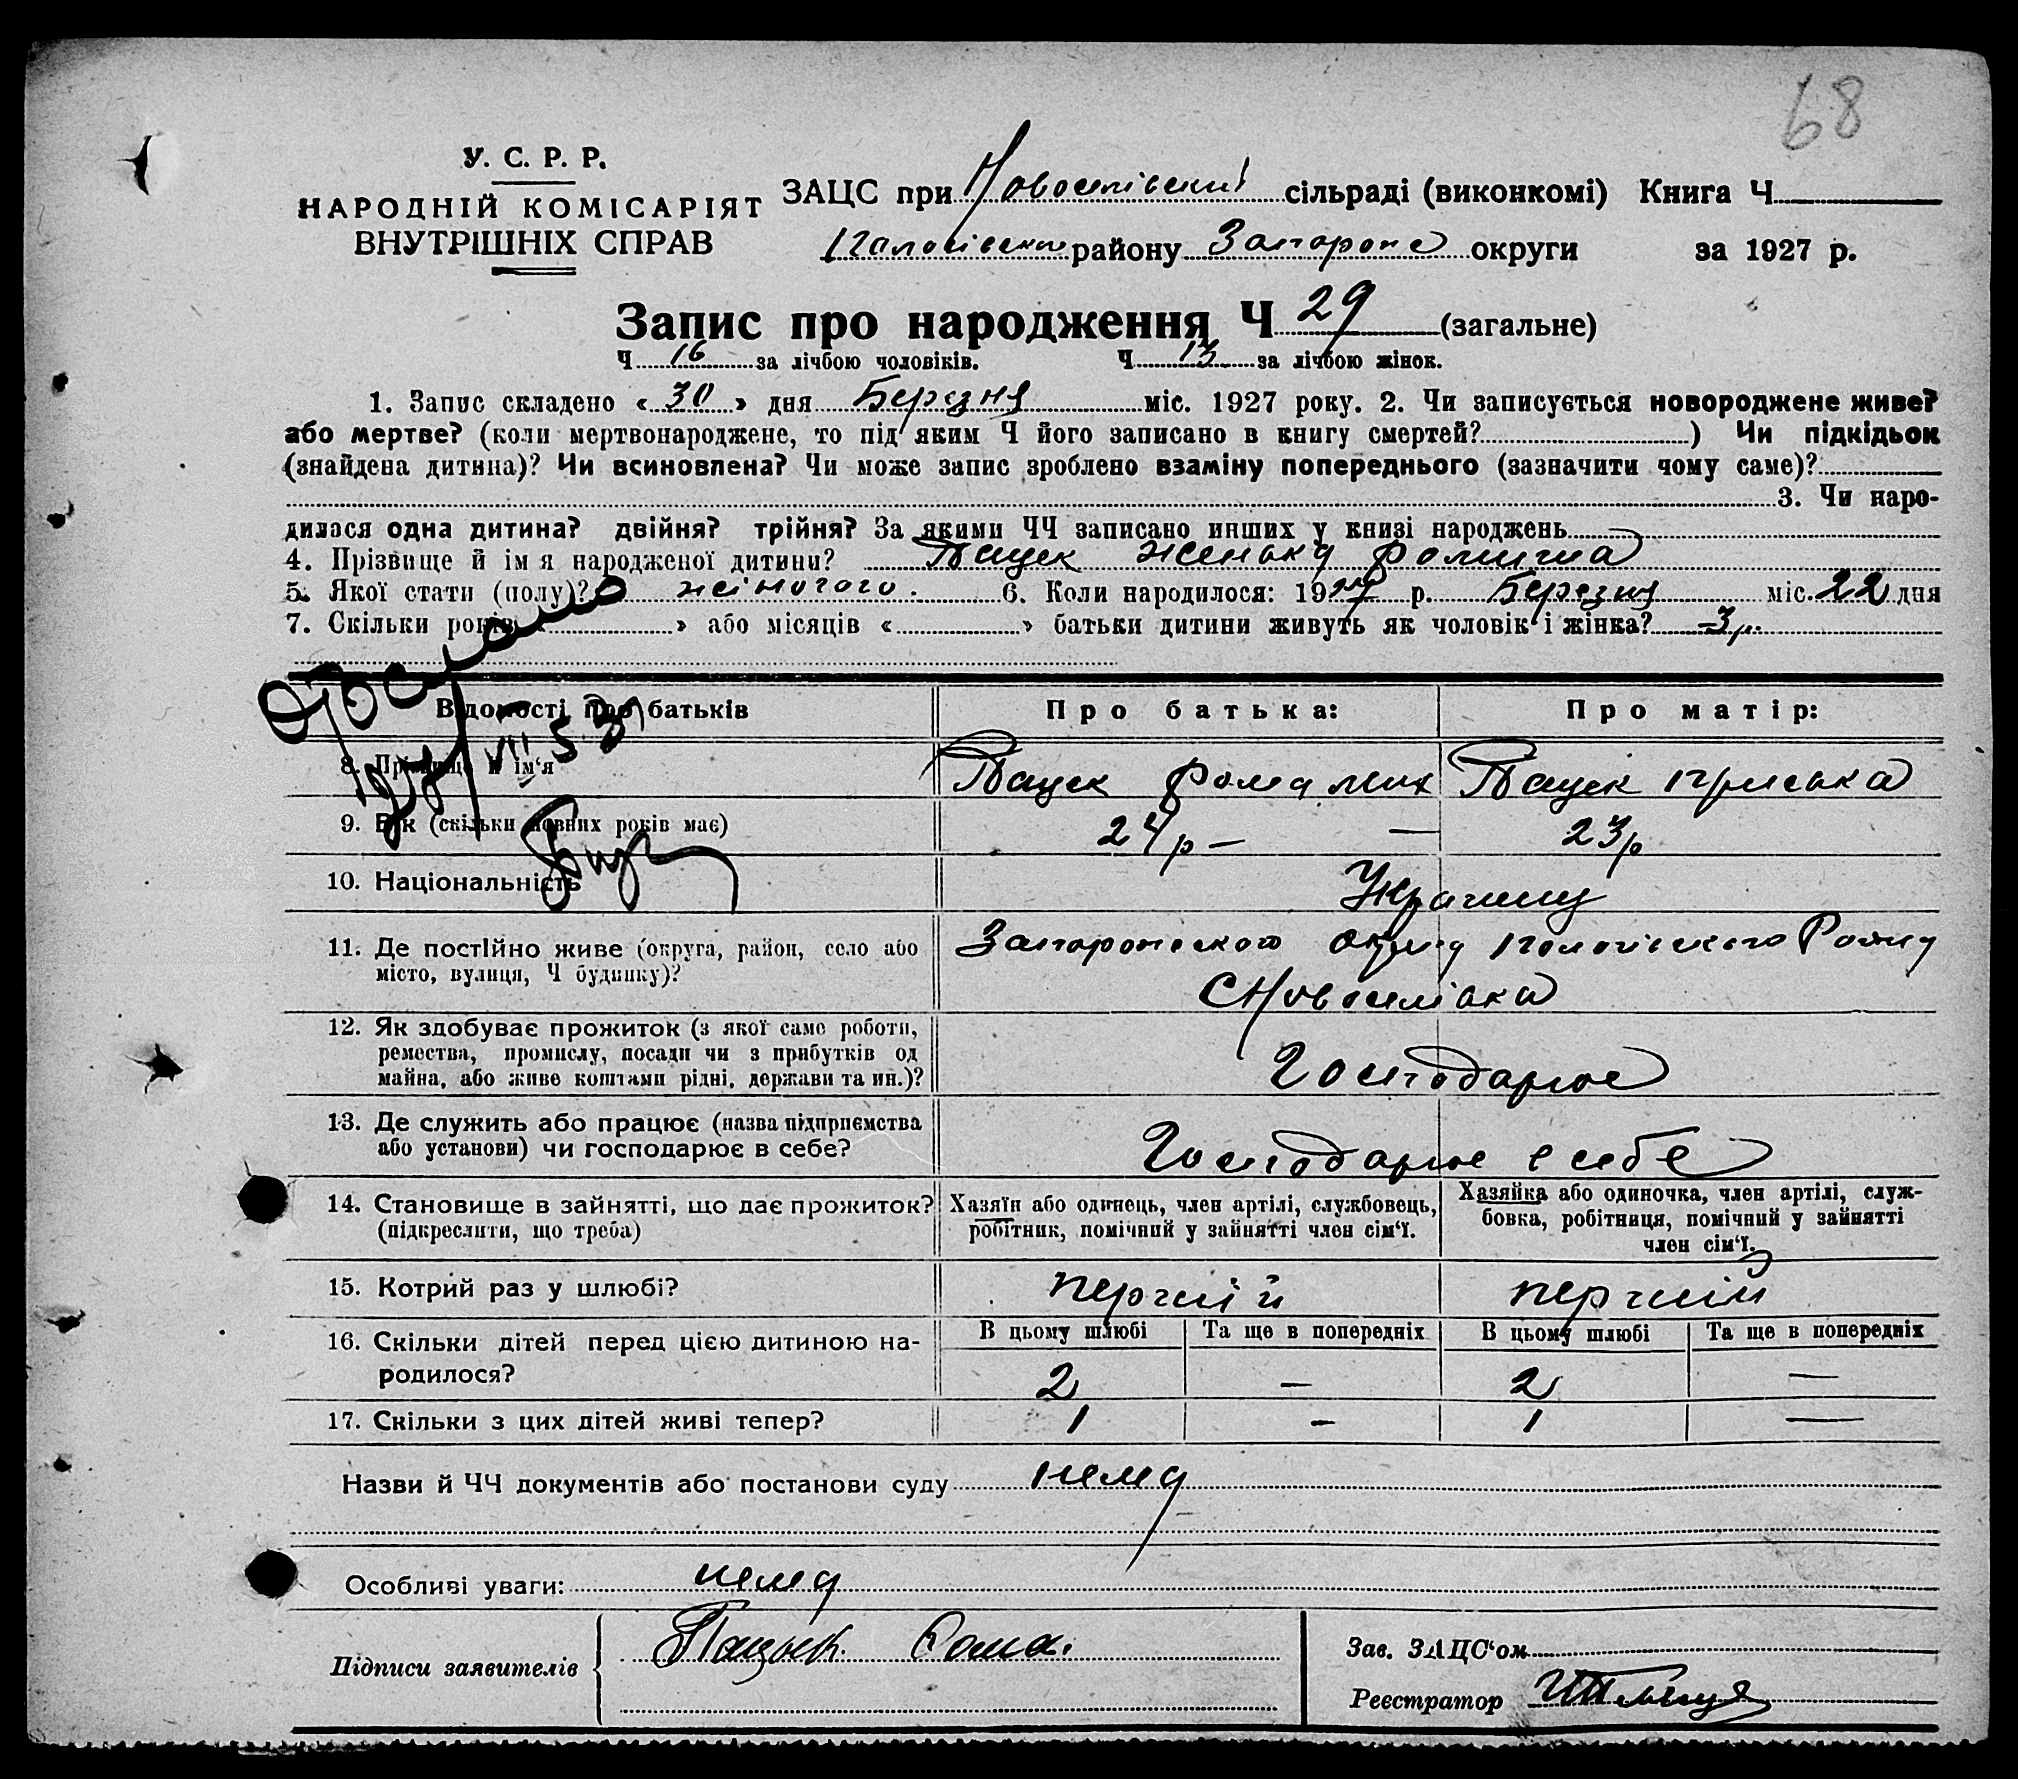 68
У. С. Р. Р.
НАРОДНІЙ КОМІСАРІЯТ
ВНУТРІШНІХ СПРАВ
ЗАЦС при Новоселівський сільраді (виконкомі) Книга Ч
району Запорізьк округи за 1927 р.
Запис про народження Ч 29 (загальне)
Ч 16 за лічбою чоловіків. Ч 13 за лічбою жінок.
1. Запис складено «30» дня Березня міс. 1927 року. 2. Чи записується новороджене живе?
або мертве? (коли мертвонароджене, то під яким Ч його записано в книгу смертей? ) Чи підкідьок
(знайдена дитина)? Чи всиновлена? Чи може запис зроблено взаміну попереднього (зазначити чому саме)?
3. Чи наро-
дилася одна дитина? двійня? трійня? За якими ЧЧ записано инших у книзі народжень
4. Прізвище й ім я народженої дитини? Пацек
5. Якої стати (полу)? жіночого. 6. Коли народилося: 1927 р. Березня міс. 22 дня
7. Скільки років « » або місяців « » батьки дитини живуть як чоловік і жінка? 3 р.
Відомості про батьків
Про батька:
Про матір:
8. Прізвище й ім‘я
Пацек Рома
Пацек
9. Вік (скільки повних років має)
24 р –
—
23 р
10. Національність
Украинц
11. Де постійно живе (округа, район, село або
місто, вулиця, Ч будинку)?
округу Району
С Новоселівка
12. Як здобуває прожиток (з якої саме роботи,
ремества, промислу, посади чи з прибутків од
майна, або живе коштами рідні, держави та ин.)?
Господарює
13. Де служить або працює (назва підприємства
або установи) чи господарює в себе?
Господарює в себе
14. Становище в зайнятті, що дає прожиток?
(підкреслити, що треба)
Хазяїн або одинець, член артілі, службовець,
робітник, помічний у зайнятті член сім‘ї.
Хазяйка або одиночка, член артілі, служ-
бовка, робітниця, помічний у зайнятті
член сім‘ї.
15. Котрий раз у шлюбі?
першій
першій
16. Скільки дітей перед цією дитиною на-
родилося?
В цьому шлюбі
Та ще в попередніх
В цьому шлюбі
Та ще в попередніх
2
–
2
—
17. Скільки з цих дітей живі тепер?
1
–
1
—
Назви й ЧЧ документів або постанови суду нема
Особливі уваги: нема
Підписи заявителів
Пацык Рома.
Зав. ЗАЦС‘ом
Реєстратор